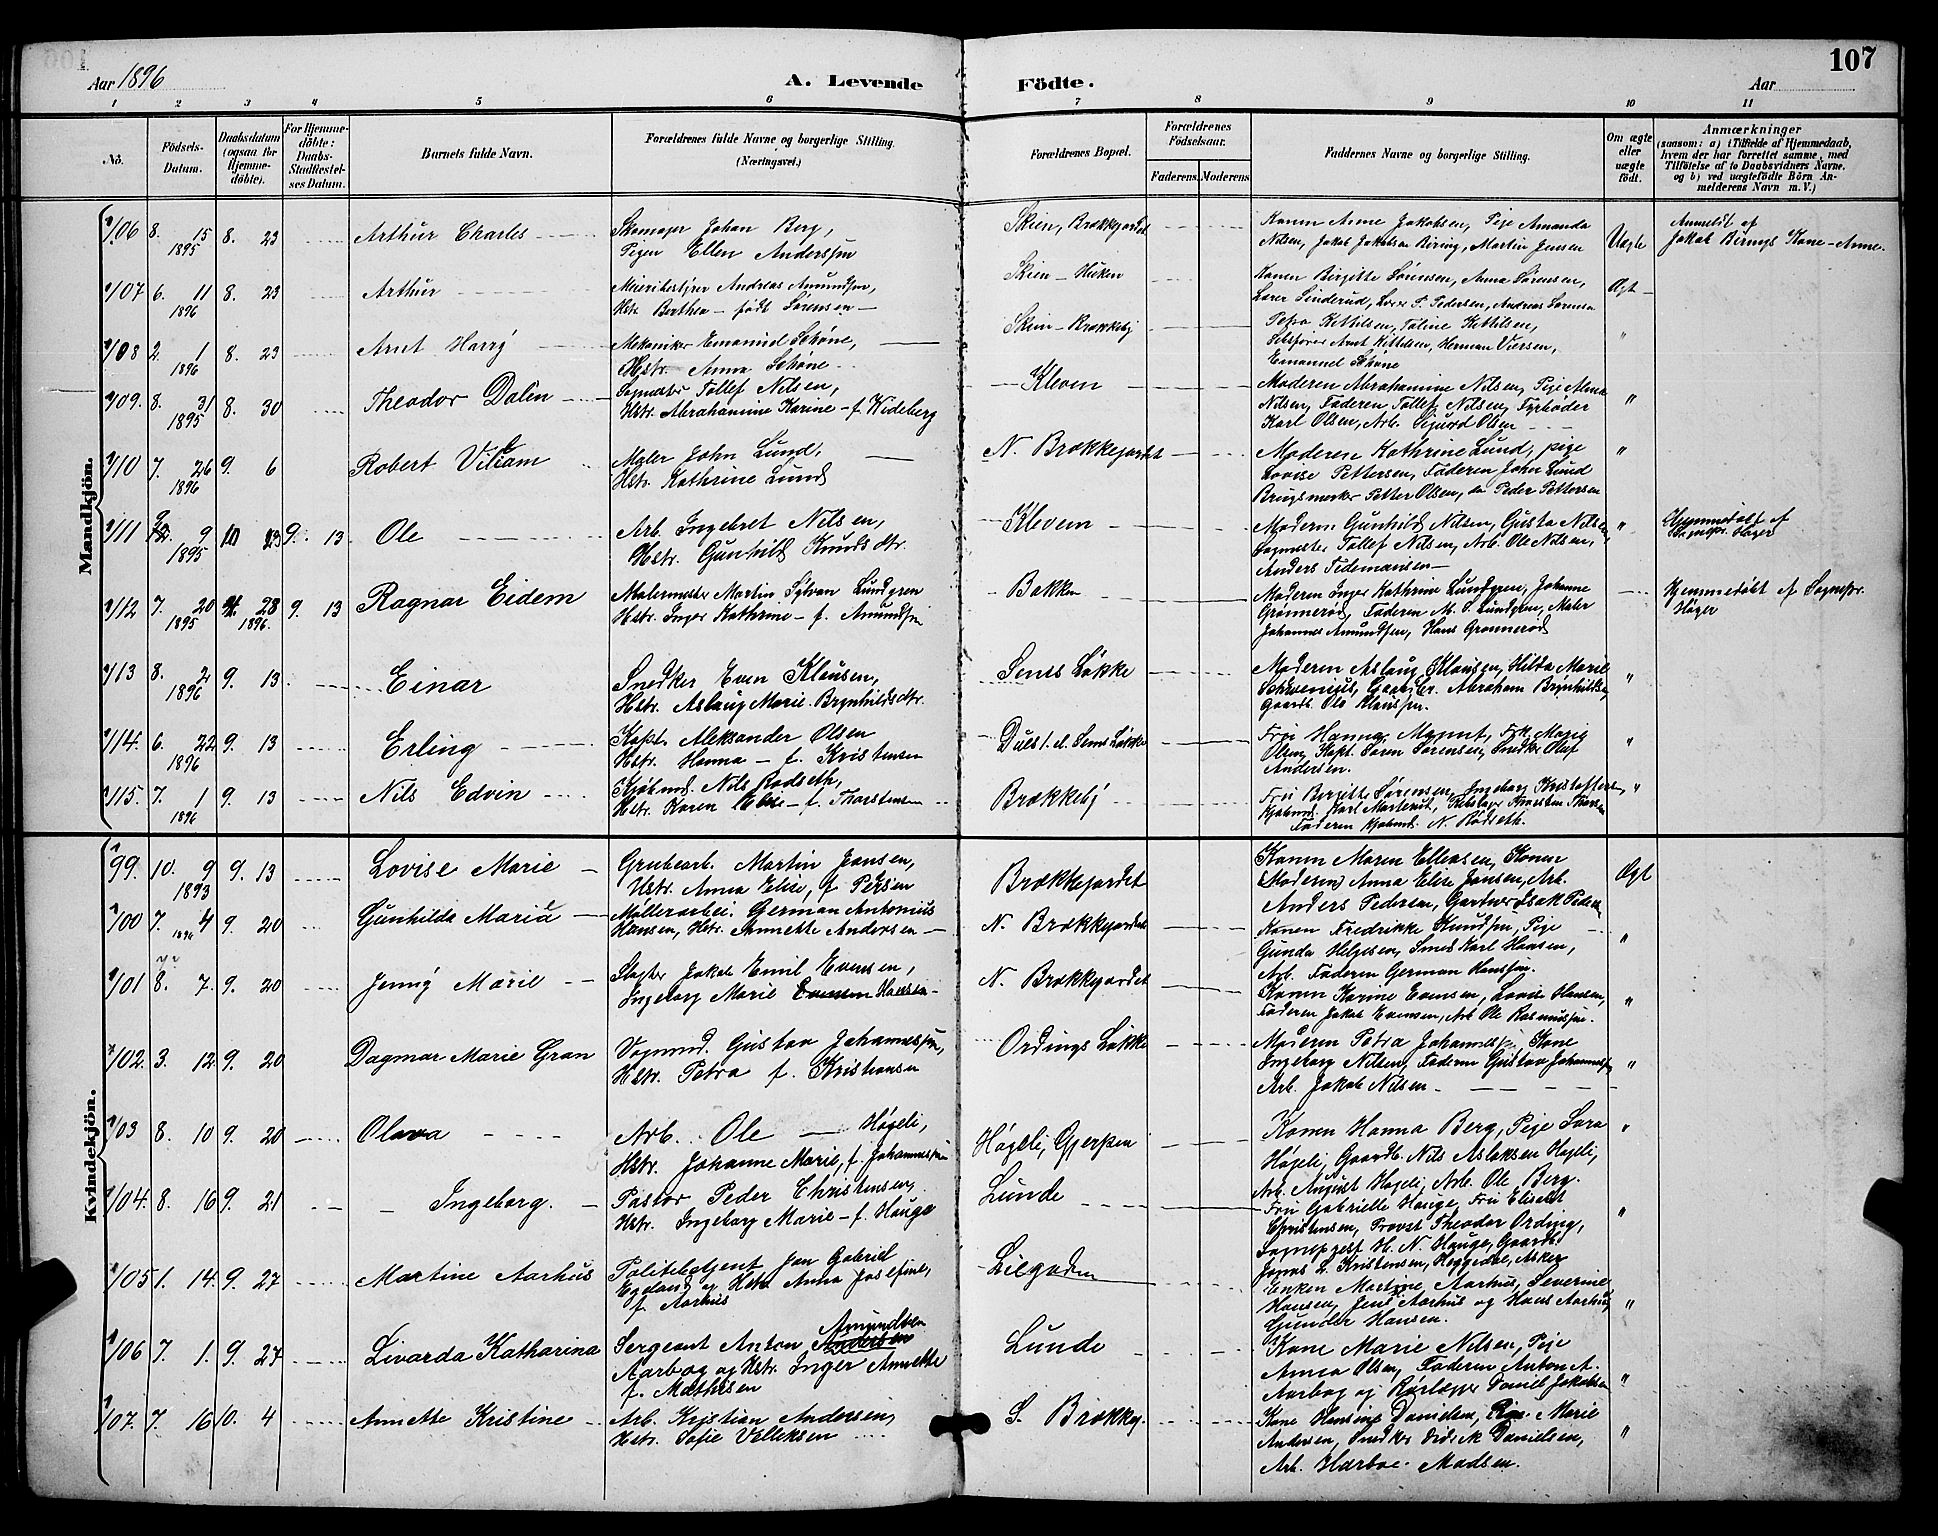 107
Aar 1896
A. Levende
Födte.
Aar
1 2 3 4 5 6 7 8 9 10 11
No.
Födsels-
Datum.
Daabsdatum
(ogsaa for
Hjemme-
döbte).
For Hjemme-
döbte:
Daabs-
Stadfæstel-
ses Datum.
Barnets fulde Navn.
Forældrenes fulde Navne og borgerlige Stilling.
(Næringsvei.)
Forældrenes Bopæl.
Forældrenes
Födselsaar.
Faderens. Moderens
Faddernes Navne og borgerlige Stilling.
Om ægte
eller
uægte
født.
Anmærkninger
(saasom: a) i Tilfælde af Hjemmedaab,
hvem der har forrettet samme, med
Tilföielse af to Daabsvidners Navne.
og b) ved uægtefödte Börn An-
melderens Navn m. V.)
Mandkjön.
/06 8. 15 1895 8. 23 Arthur Charles
Skomager Johan Berg,
Pigen Ellen Anderssen
Skien, Brækkejordet
Konen Anne Jakobsen, Pige Amanda
Nilsen, Jakob Jakobsen Biring, Martin Jensen
Uægte
Anmeldt af
Jakob Birings Kone - Anne.
/07 6. 11 1896 8. 23 Arthur
Meieribestyrer Andreas Amundsen,
Hstr. Berthea - født Sørensen -
Skien -
Konen Birgitte Sørensen, Anna Sørensen,
Lærer Sinderud, Lærer P. Pedersen, Andreas Sørensen
Ægt
/08 2. 1 1896 8. 23 Arnt Harrÿ
Mekaniker Emanuel Schöne,
Hstr. Anna Schöne
Skien - Brækkebÿ
Petra Kittilsen, Taline Kittilsen,
Arnt Kittilsen, Herman Iversen,
Emanuel Schöne
"
/09. 8. 31 1895 8. 30 Theodor Dalen
Sagmester Tollef Nilsen,
Hstr. Abrahamine Karine - f. Wideberg
Kleven
Moderen Abrahamine Nilsen, Pige Alma
Nilsen, Faderen Tollef Nilsen, Fyrbøder
Karl Olsen, Arb. Sigurd Olsen
"
/10 7. 26 1896 9. 6 Robert Viliam
Maler John Lund,
Hstr. Kathrine Lund
N. Brækkejordet
Moderen Kathrine Lund, pige
Lovise Pettersen, Faderen John Lund
Brugsmester Petter Olsen, do Peder Pettersen
"
/11 9 1895 9. 13 Ole
Arb. Ingebret Nilsen,
Hstr. Gunhild Knudsdtr.
Klevem
Moderen Gunhild Nilsen, Gusta Nilsen,
Sagmester Tollef Nilsen, Arb. Ole Nilsen,
Anders Tidemansen -
"
Hjemmedøbt af
Sognepr. Høyer
/12 7. 20 1895 28 1896. 9. 13 Ragnar Eidem
Malermester Martin Sylvan Lundgren
Hstr. Inger Kathrine - f. Amundsen
Bakken
Moderen Inger Kathrine Lundgren, Johanne
Grønnerød, Faderen M. S. Lundgren, Maler
Johannes Amundsen, Hans Grønnerød
Hjemmedøbt af Sognepr.
Høyer
/13 8. 2 1896 9. 13. Einar
Snedker Even Klausen,
Hstr. Aslaug Marie Brynhildsdtr.
Sems Løkke
Moderen Aslaug Klausen, Hilda Marie
Abraham Brynhildsen
Gaardb. Ole Klausen.
"
/14. 6. 22 1896 9. 13 Erling
Kapt. Aleksander Olsen
Hstr. Hanna - f. Kristensen
Dues l. el. Sems Løkke
Fru Hanna Magnet, Frk. Marie
Olsen, Kapt. Søren Sørensen, Snedkr. Olaf
Andersen.
"
/15. 7. 1 1896 9. 13 Nils Edvin
Kjøbmd. Nils Rødseth,
Hstr. Karen Elise - f. Thorstensen
Brækkebÿ
Fru Birgitte Sørensen, Ingeborg Kristoffersen,
Kjøbmd. Karl Marterud, Thorsten Thorsen
Faderen Kjøbmd. N. Rødseth.
"
Kvindekjön.
99. 10. 9 1893 9. 13 Lovise Marie
Grubearb. Martin Jensen,
Hstr. Anna Elise, f. Persen
Brækkejordet
Konen Maren Ellevsen, Konen
(Moderen) Anna Elise Jansen, Arb.
Anders Pedersen, Gartner Isak Pedersen
Ægt
/00 7. 4 1896 9. 20 Gunhilda Maria
Møllerarbei. German Antonius
Hansen, Hstr. Annette Andersen -
N. Brækkejordet
Konen Fredrikke Knudsen, Pige
Gunda Helgesen, Smed Karl Hansen,
Arb. Faderen German Hanssen.
"
/01 8. 7. 9. 20 Jenny Marie
Slagter Jakob Emil Evensen,
Ingeborg Marie Evensen Hansen -
N. Brækkejordet
Konen Karine Evensen, Lovise Hansen,
Faderen Jakob Evensen, Arb. Ole Rasmussen.
"
/02. 3. 12. 9. 20 Dagmar Marie Gran
Vognmd. Gustav Johannessen,
Hstr. Petra f. Kristiansen
Ordings Løkke
Moderen Petra Johannessen, Kone
Ingeborg Nilsen, Faderen Gustav Johannessen
Arb. Jakob Nilsen -
"
/03 8. 10 9. 20 Olava
Arb. Ole - Høgeli,
Hstr. Johanne Marie, f. Johannessen
Høgeli, Gjerpen
Konen Hanna Berg, Pige Sara
Høgeli, Gaardb. Nils Aslaksen Høgeli,
Arb. August Høgeli, Arb. Ole Berg.
"
/04. 8. 16 9. 21 Ingeborg.
Pastor Peder Christensen,
Hstr. Ingeborg Marie - f. Hauge
Lunde
Fru Gabrielle Hauge, Fru Elisabt
Christensen, Provst Theodor Ording,
Sogneprest H. N. Hauge, Gaardb.
Jonas L. Kristensen, Heggedal, Asker
"
/05 1. 14. 9. 27 Martine Aarhus
Politibetjent Jan Gabriel
Egeland og Hstr. Anna Josefine,
f. Aarhus
Liegaden
Enken Martine Aarhus, Severine
Hansen, Jens Aarhus og Hans Aarhus,
Gunder Hansen.
"
/06 7. 1. 9. 27 Livarda Katharina
Amundsen
Sergeant Anton Andersen
Aarbog og Hstr. Inger Annette
f. Mathisen
Lunde
Kone Marie Nilsen, Pige
Anna Olsen, Faderen Anton A.
Aarbog og Rørlægger Daniel Jakobsen
"
/07. 7. 16 10. 4 Annette Kristine
Arb. Kristian Andersen,
Hstr. Sofie Velleksen
S. Brækkej.
Kone Hansine Danielsen, Marie
Andersen, Snedker Didrik Danielsen,
Arb. Harboe Madsen.
"